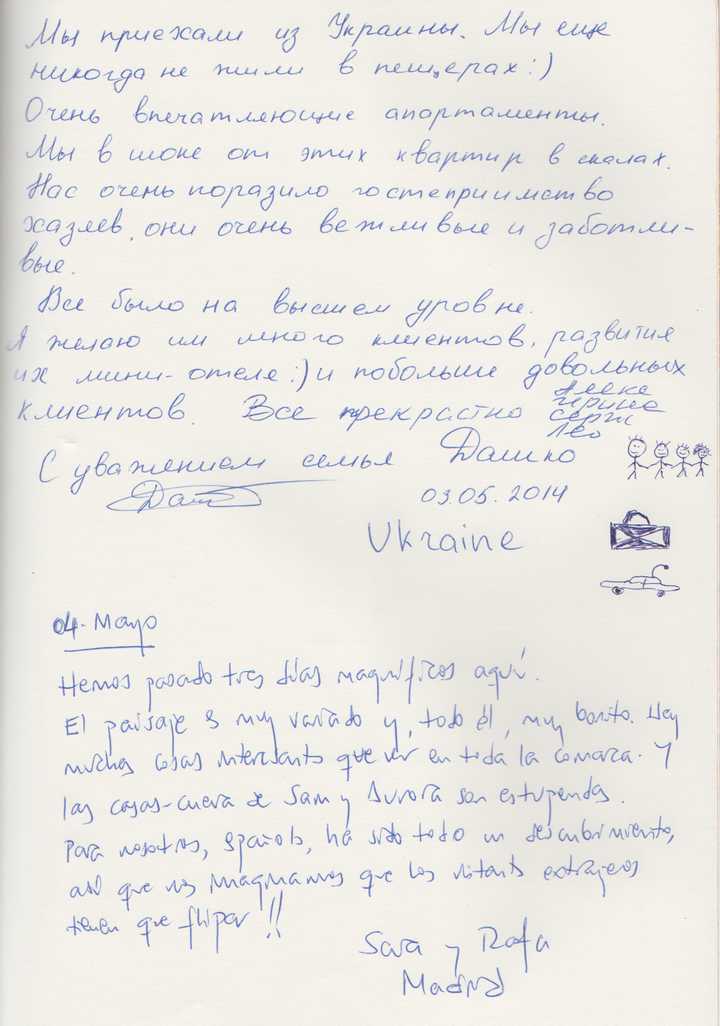 Мы приехали из Украины. Мы еще
никогда не жили в пещерах:)
Очень впечатляющие апартаменты.
Мы в шоке от этих квартир в скалах.
Нас очень поразило гостеприимство
хазяев, они очень вежливые и заботли-
вые.
Все было на высшем уровне.
Я желаю им много клиентов, развития
их мини-отеля:) и побольше довольных
клиентов. Все прекрастно
Ирина
Серж
Лео
С уважением семья Дашко
03.05.2014
Ukraine
04-Mayo
Hemos pasado tres días magníficos aquí.
El paisaje es muy variado y, todo él, muy bonito. Hay
muchas cosas interesantes que ver en toda la comarca. Y
las casas-cueva de Sam y Aurora son estupendas.
Para nosotros, españoles, ha sido todo un descubrimiento,
así que nos imaginamos que los visitantes extrajeros
tienen que flipar!!
Sara y Rafa
Madrid